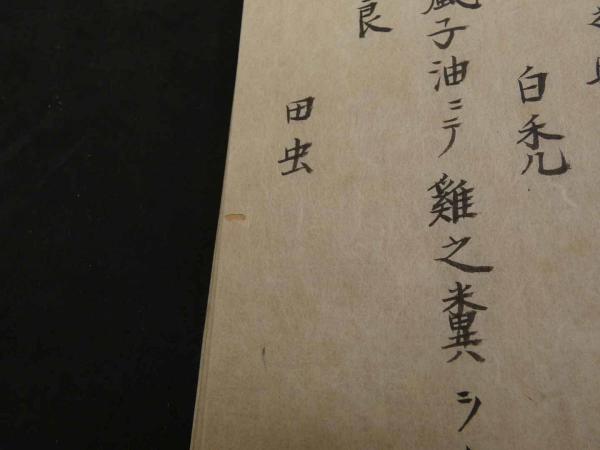 白禿
風子油ニテ雞之糞ヲ
良
田虫